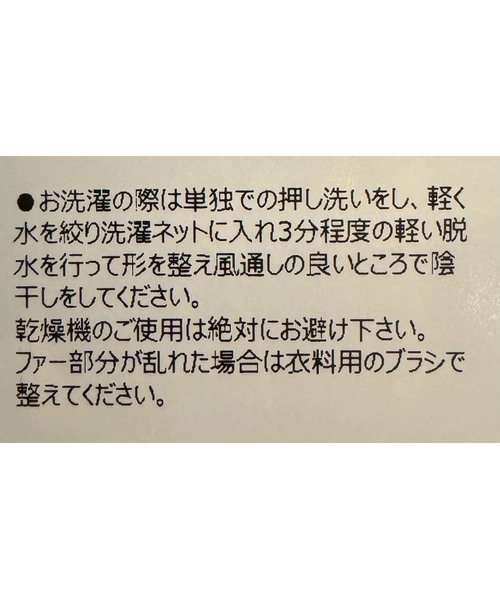 ●お洗濯の際は単独での押し洗いをし、軽く
水を絞り洗濯ネットに入れ3分程度の軽い脱
水を行って形を整え風通しの良いところで陰
干しをしてください。
乾燥機のご使用は絶対にお避け下さい。
ファー部分が乱れた場合は衣料用のブラシで
整えてください。